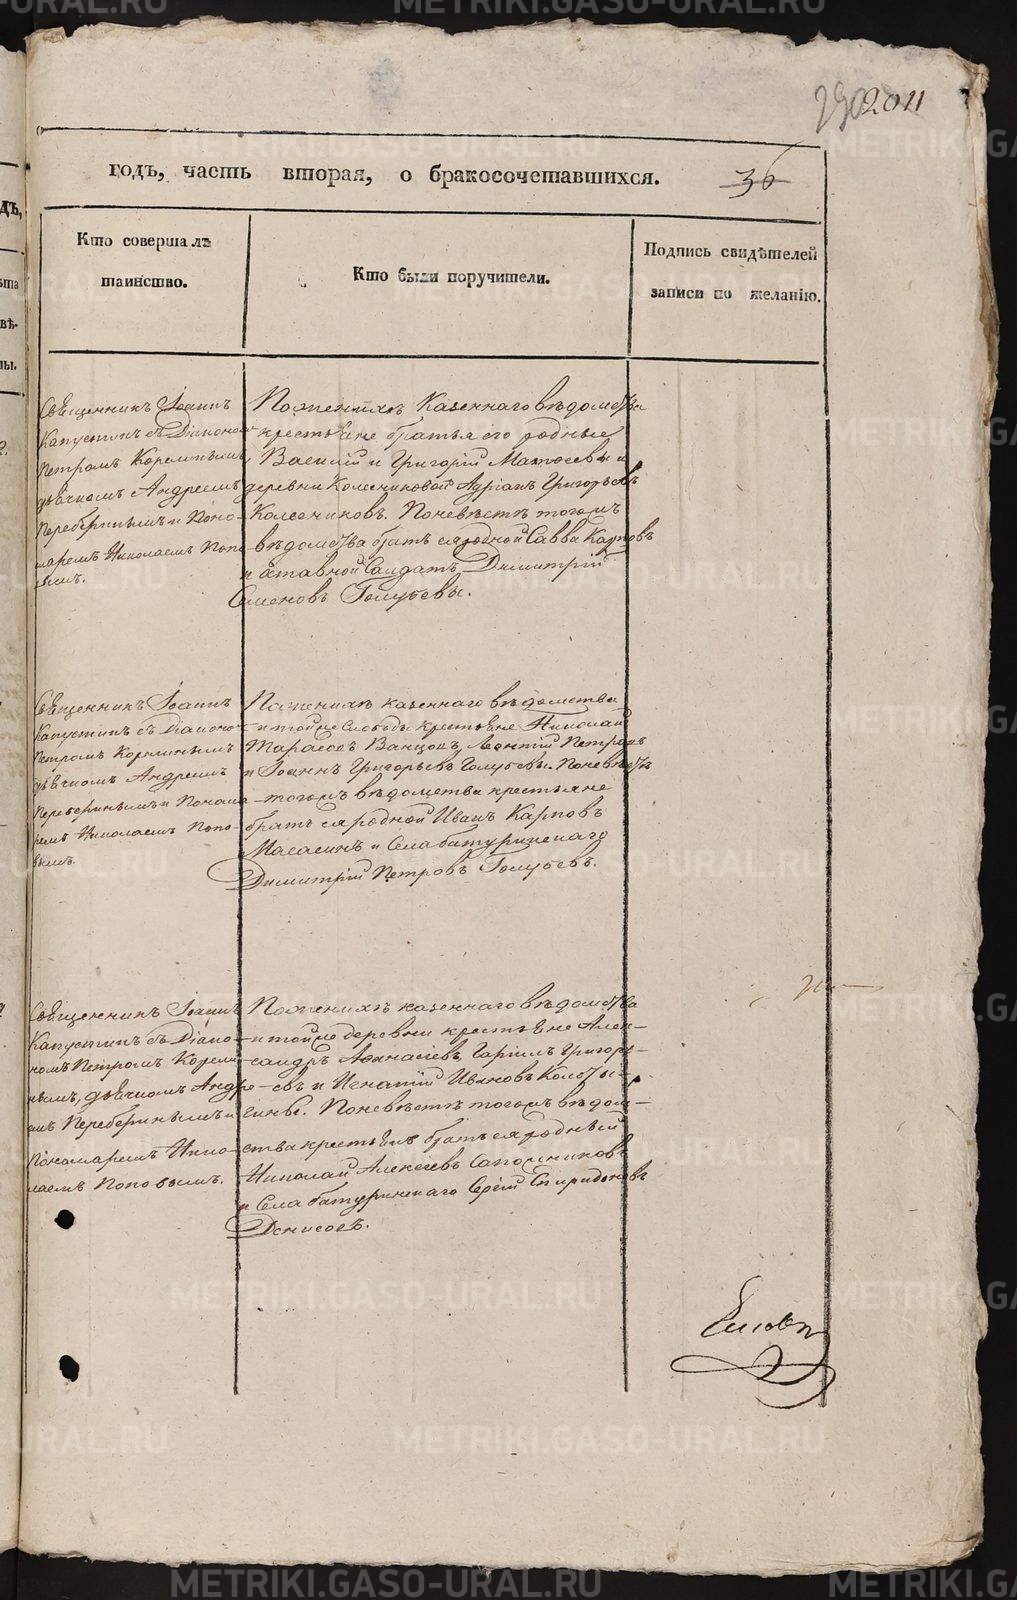 2011
годъ, часть вторая, о бракосочетавшихся.
36
Кто совершалъ
таинство.
Кто были поручители.
Подпись свидѣтелей
записи по желанію.
Священникъ Іоаннъ
Капустинъ съ Діакономъ
Петромъ
дьячкомъ Андреемъ
Переберинымъ и Поно-
маремъ Николаемъ Попо-
вымъ.
По женихѣ казеннаго вѣдомства
крестьяне братья его родные
Василій и Григорій и
деревни Колесниковой Адріанъ Григорьевъ
Колесниковъ. По невѣстѣ тогожъ
вѣдомства братъ ея родной Савва Карповъ
и отставной Солдатъ Димитрій
Семеновъ Голубевы.
Священникъ Іоаннъ
Капустинъ съ Діакономъ
Петромъ
дьячкомъ Андреемъ
Переберинымъ и Понома-
ремъ Николаемъ Попо-
вымъ.
По женихѣ казеннаго вѣдомства
и тойже Слободы крестьяне Николай
Тарасовъ Леонтій Петровъ
и Іоаннъ Григорьевъ Голубевы. По невѣстѣ
тогожъ вѣдомства крестьяне
братъ ея родной Иванъ Карповъ
и Села батуринскаго
Димитрій Петровъ Голубевъ.
Священникъ Іоаннъ
Капустинъ съ Діако-
номъ Петромъ
дьячкомъ Андре-
емъ Переберинымъ и
пономаремъ Нико-
лаемъ Поповымъ.
По женихѣ казеннаго вѣдомства
и тойже деревни крестьяне Алек-
сандръ Аѳанасіевъ, Григорь-
евъ и Игнатій Ивановъ
По невѣстѣ тогожъ вѣдом-
ства крестьяне братъ ея родный
Николай Алексіевъ Сапожниковъ
и Села батуринскаго Сергій Спиридоновъ
Денисовъ.
METRIKI.GASO-URAL.RU